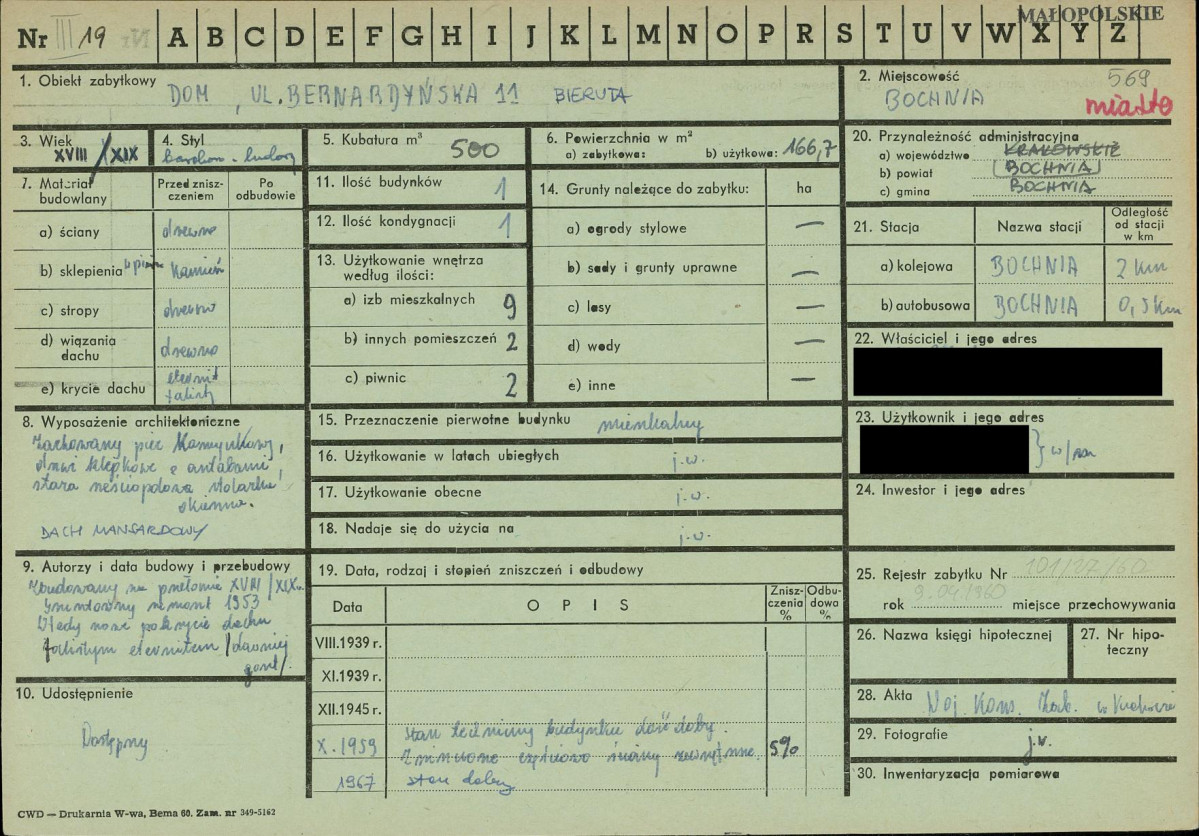 MAŁOPOLSKIE
Nr III 19 A B C D E F G H I J K L M N O P R S T U V W X Y Z
1. Obiekt zabytkowy DOM, UL. BERNARDYŃSKA 11 BIERUTA
2. Miejscowość 569
BOCHNIA miasto
3. Wiek XVIII/XIX
4. Styl barokon-ludowy
5. Kubatura m³ 500
6. Powierzchnia w m²
a) zabytkowa: b) użytkowa: 166,7
20. Przynależność administracyjna
a) województwo KRAKOWSKIE
b) powiat BOCHNIA
c) gmina BOCHNIA
7. Materiał budowlany
Przed zniszczeniem
Po odbudowie
a) ściany drewno
b) sklepienia kamień
c) stropy drewno
d) wiązania dachu drewno
e) krycie dachu eternit falisty
11. Ilość budynków 1
12. Ilość kondygnacji 1
13. Użytkowanie wnętrza według ilości:
a) izb mieszkalnych 9
b) innych pomieszczeń 2
c) piwnic 2
14. Grunty należące do zabytku: ha
a) ogrody stylowe —
b) sady i grunty uprawne —
c) lasy —
d) wody —
e) inne —
21. Stacja
Nazwa stacji
Odległość od stacji w km
a) kolejowa BOCHNIA 2 km
b) autobusowa BOCHNIA 0,5 km
22. Właściciel i jego adres
8. Wyposażenie architektoniczne
Zachowany piec
drzwi klepkowe z antabami,
stara sześciopolowa stolarka
okienna.
DACH MANSARDOWY
15. Przeznaczenie pierwotne budynku mieszkalny
16. Użytkowanie w latach ubiegłych j.w.
17. Użytkowanie obecne j.w.
18. Nadaje się do użycia na j.w.
23. Użytkownik i jego adres
24. Inwestor i jego adres
9. Autorzy i data budowy i przebudowy
Zbudowany na przełomie XVIII/XIX w.
Gruntowny remont 1953
Wtedy nowe pokrycie dachu
falistym eternitem /dawniej
gont/.
10. Udostępnienie
Dostępny
19. Data, rodzaj i stopień zniszczeń i odbudowy
Data
OPIS
Zniszczenia %
Odbudowa %
VIII.1939 r.
XI.1939 r.
XII.1945 r.
X.1959 Stan techniczny budynku dość dobry.
Zniszczone częściowo ściany zewnętrzne. 5%
1967 stan dobry
25. Rejestr zabytku Nr 101/27/60
rok 9.04.1960 miejsce przechowywania
26. Nazwa księgi hipotecznej
27. Nr hipoteczny
28. Akta Woj. Kons. Zab. w Krakowie
29. Fotografie j.w.
30. Inwentaryzacja pomiarowa
CWD — Drukarnia W-wa, Bema 60. Zam. nr 349-5162